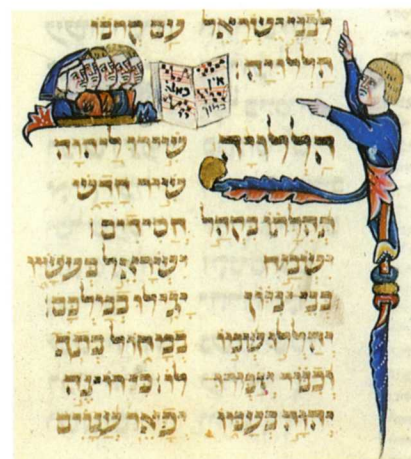 לבני ישראל עם קרובו
הללויה:
הללויה שירו ליהוה
שיר חדש
תהלתו בקהל חסידים:
ישמח ישראל בעשיו
בני ציון יגילו במלכם:
יהללו שמו במחול בתף
וכנור יזמרו לו: כי רוצה
יהוה בעמו יפאר ענוים